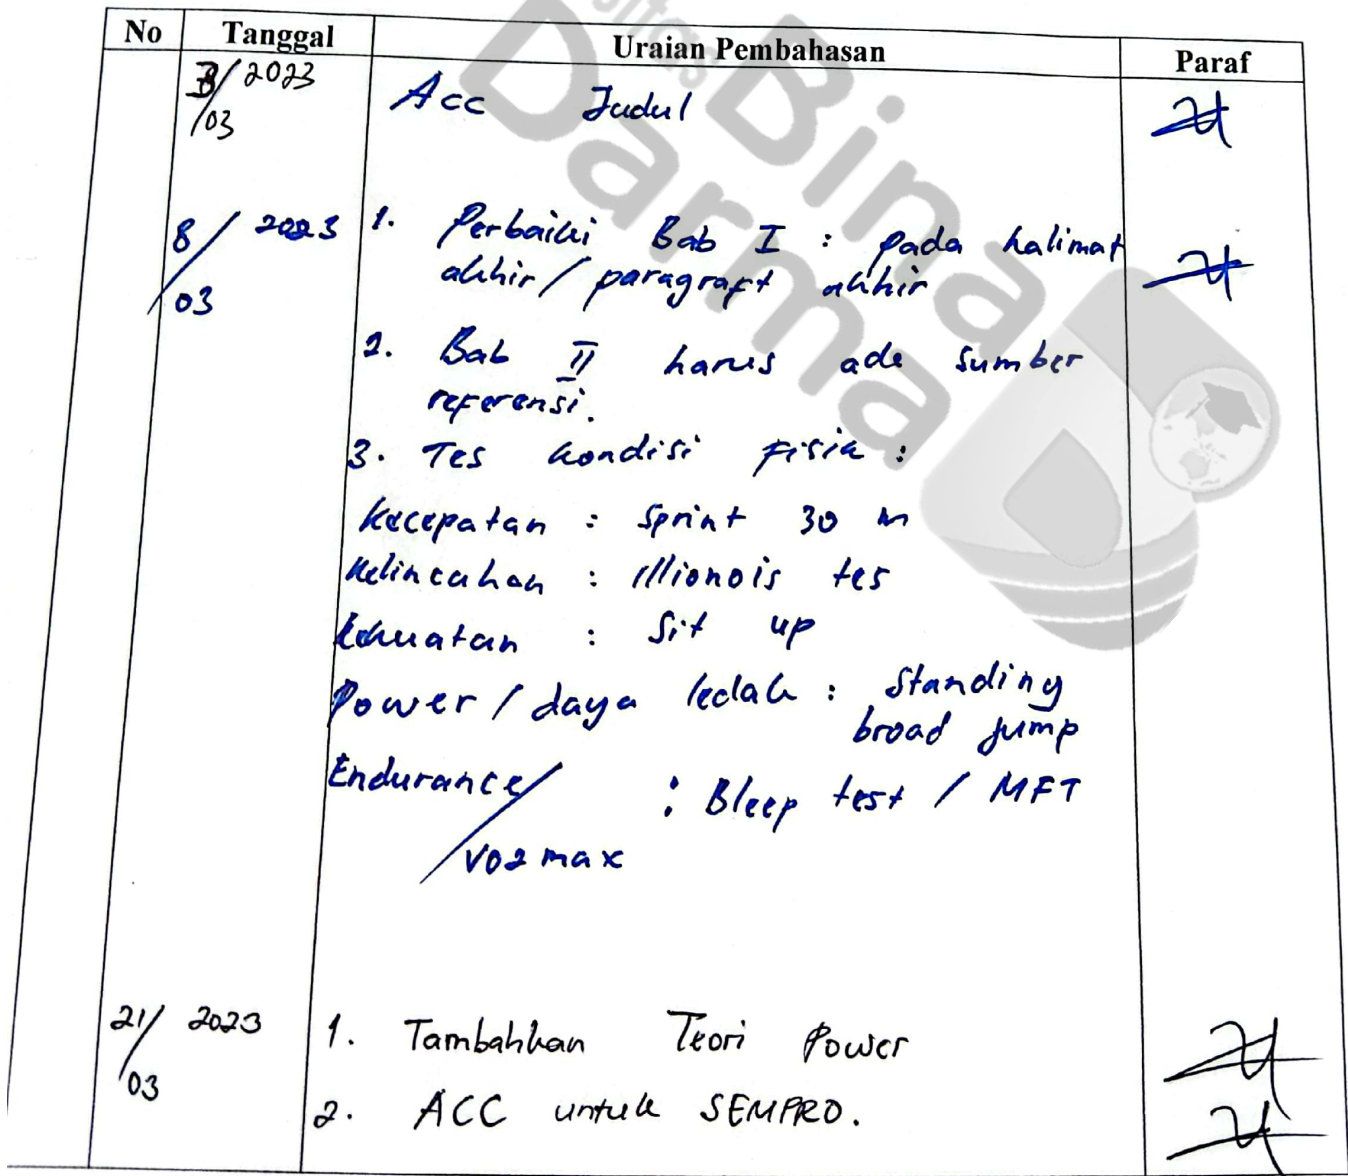 No Tanggal Uraian Pembahasan Paraf
3/03 2023 Acc Judul
8/03 2023 1. Perbaiki Bab I : pada kalimat
akhir / paragraft akhir
2. Bab II harus ada sumber
referensi.
3. Tes kondisi fisik :
kecepatan : Sprint 30 m
kelincahan : illionois tes
kekuatan : Sit up
Power / daya ledak : Standing
broad jump
Endurance/ : Bleep test / MFT
VO2 max
21/03 2023 1. Tambahkan Teori Power
2. ACC untuk SEMPRO.
Bina
Darma